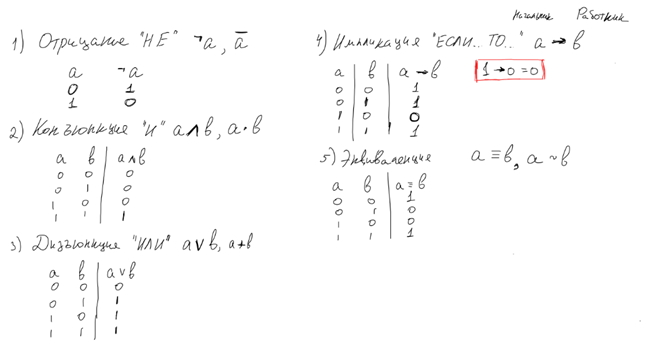 1) Отрицание "НЕ" ¬a, a̅
a ¬a
0 1
1 0
2) Конъюнкция "И" a∧b, a·b
a b a∧b
0 0 0
0 1 0
1 0 0
1 1 1
3) Дизъюнкция "ИЛИ" a∨b, a+b
a b a∨b
0 0 0
0 1 1
1 0 1
1 1 1
Начальник Работник
4) Импликация "ЕСЛИ... ТО..." a→b
a b a→b 1→0=0
0 0 1
0 1 1
1 0 0
1 1 1
5) Эквиваленция a≡b, a~b
a b a≡b
0 0 1
0 1 0
1 0 0
1 1 1